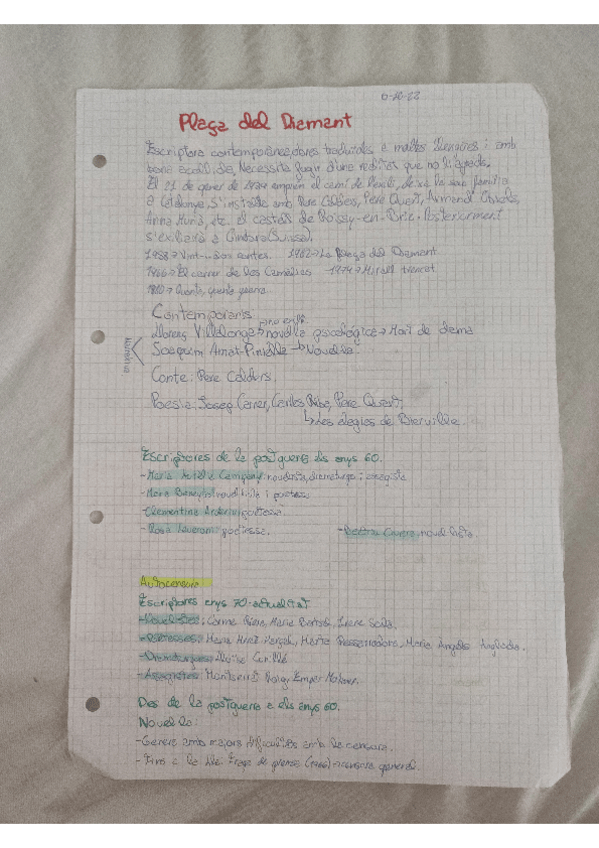 6-10-22
Plaça del Diamant
Escriptora contemporànea, dones traduïdes a moltes llengües i amb
bona acollida. Necessita fugir d'una realitat que no li agrada.
El 21 de gener de 1939 empren el camí de l'exili, deixa la seva família
a Catalunya. S'instal·la amb Pere Calders, Pere Quart, Armand Obiols,
Anna Murià, etc. el castell de Roissy-en-Brie. Posteriorment
s'exiliarà a Ginebra (Suïssa).
1958→ Vint-i-dos contes. 1962→La Plaça del Diamant
1966→ El carrer de les Camèlies -1974→ Mirall trencat
1980→ Quanta, quanta guerra
Contemporanis
Llorenç Villalonga→ novel·la psicològica→ Mort de dama
Joaquim Amat-Piniella→Novel·la
Conte: Pere Calders.
Poesia: Josep Carner, Carles Riba, Pere Quart.
↳Les elegies de Bierville.
Escriptores de la postguerra als anys 60.
-Maria Aurèlia Company: novelista, dramaturga i assagista
-Maria Beneyto: novel·lista i poetessa
-Clementina Arderiu: poetessa.
-Rosa Leveroni: poetessa. -Beatriu Civera: novel·lista.
Autocensura
Escriptores anys 70-actualitat
-Novel·listes: Carme Riera, Maria Barbal, Irene Solà.
-Poetesses: Maria Mercè Marçal, Marta Pessarrodona, Maria Àngels Anglada.
-Dramaturgues: Lluïsa Cunillé
-Assagistes: Montserrat Roig, Empar Moliner.
Des de la postguerra a els anys 60.
Novel·la:
-Genere amb majors dificultats amb la censura.
-Fins a la llei Fraga de premsa (1966)→censura general.